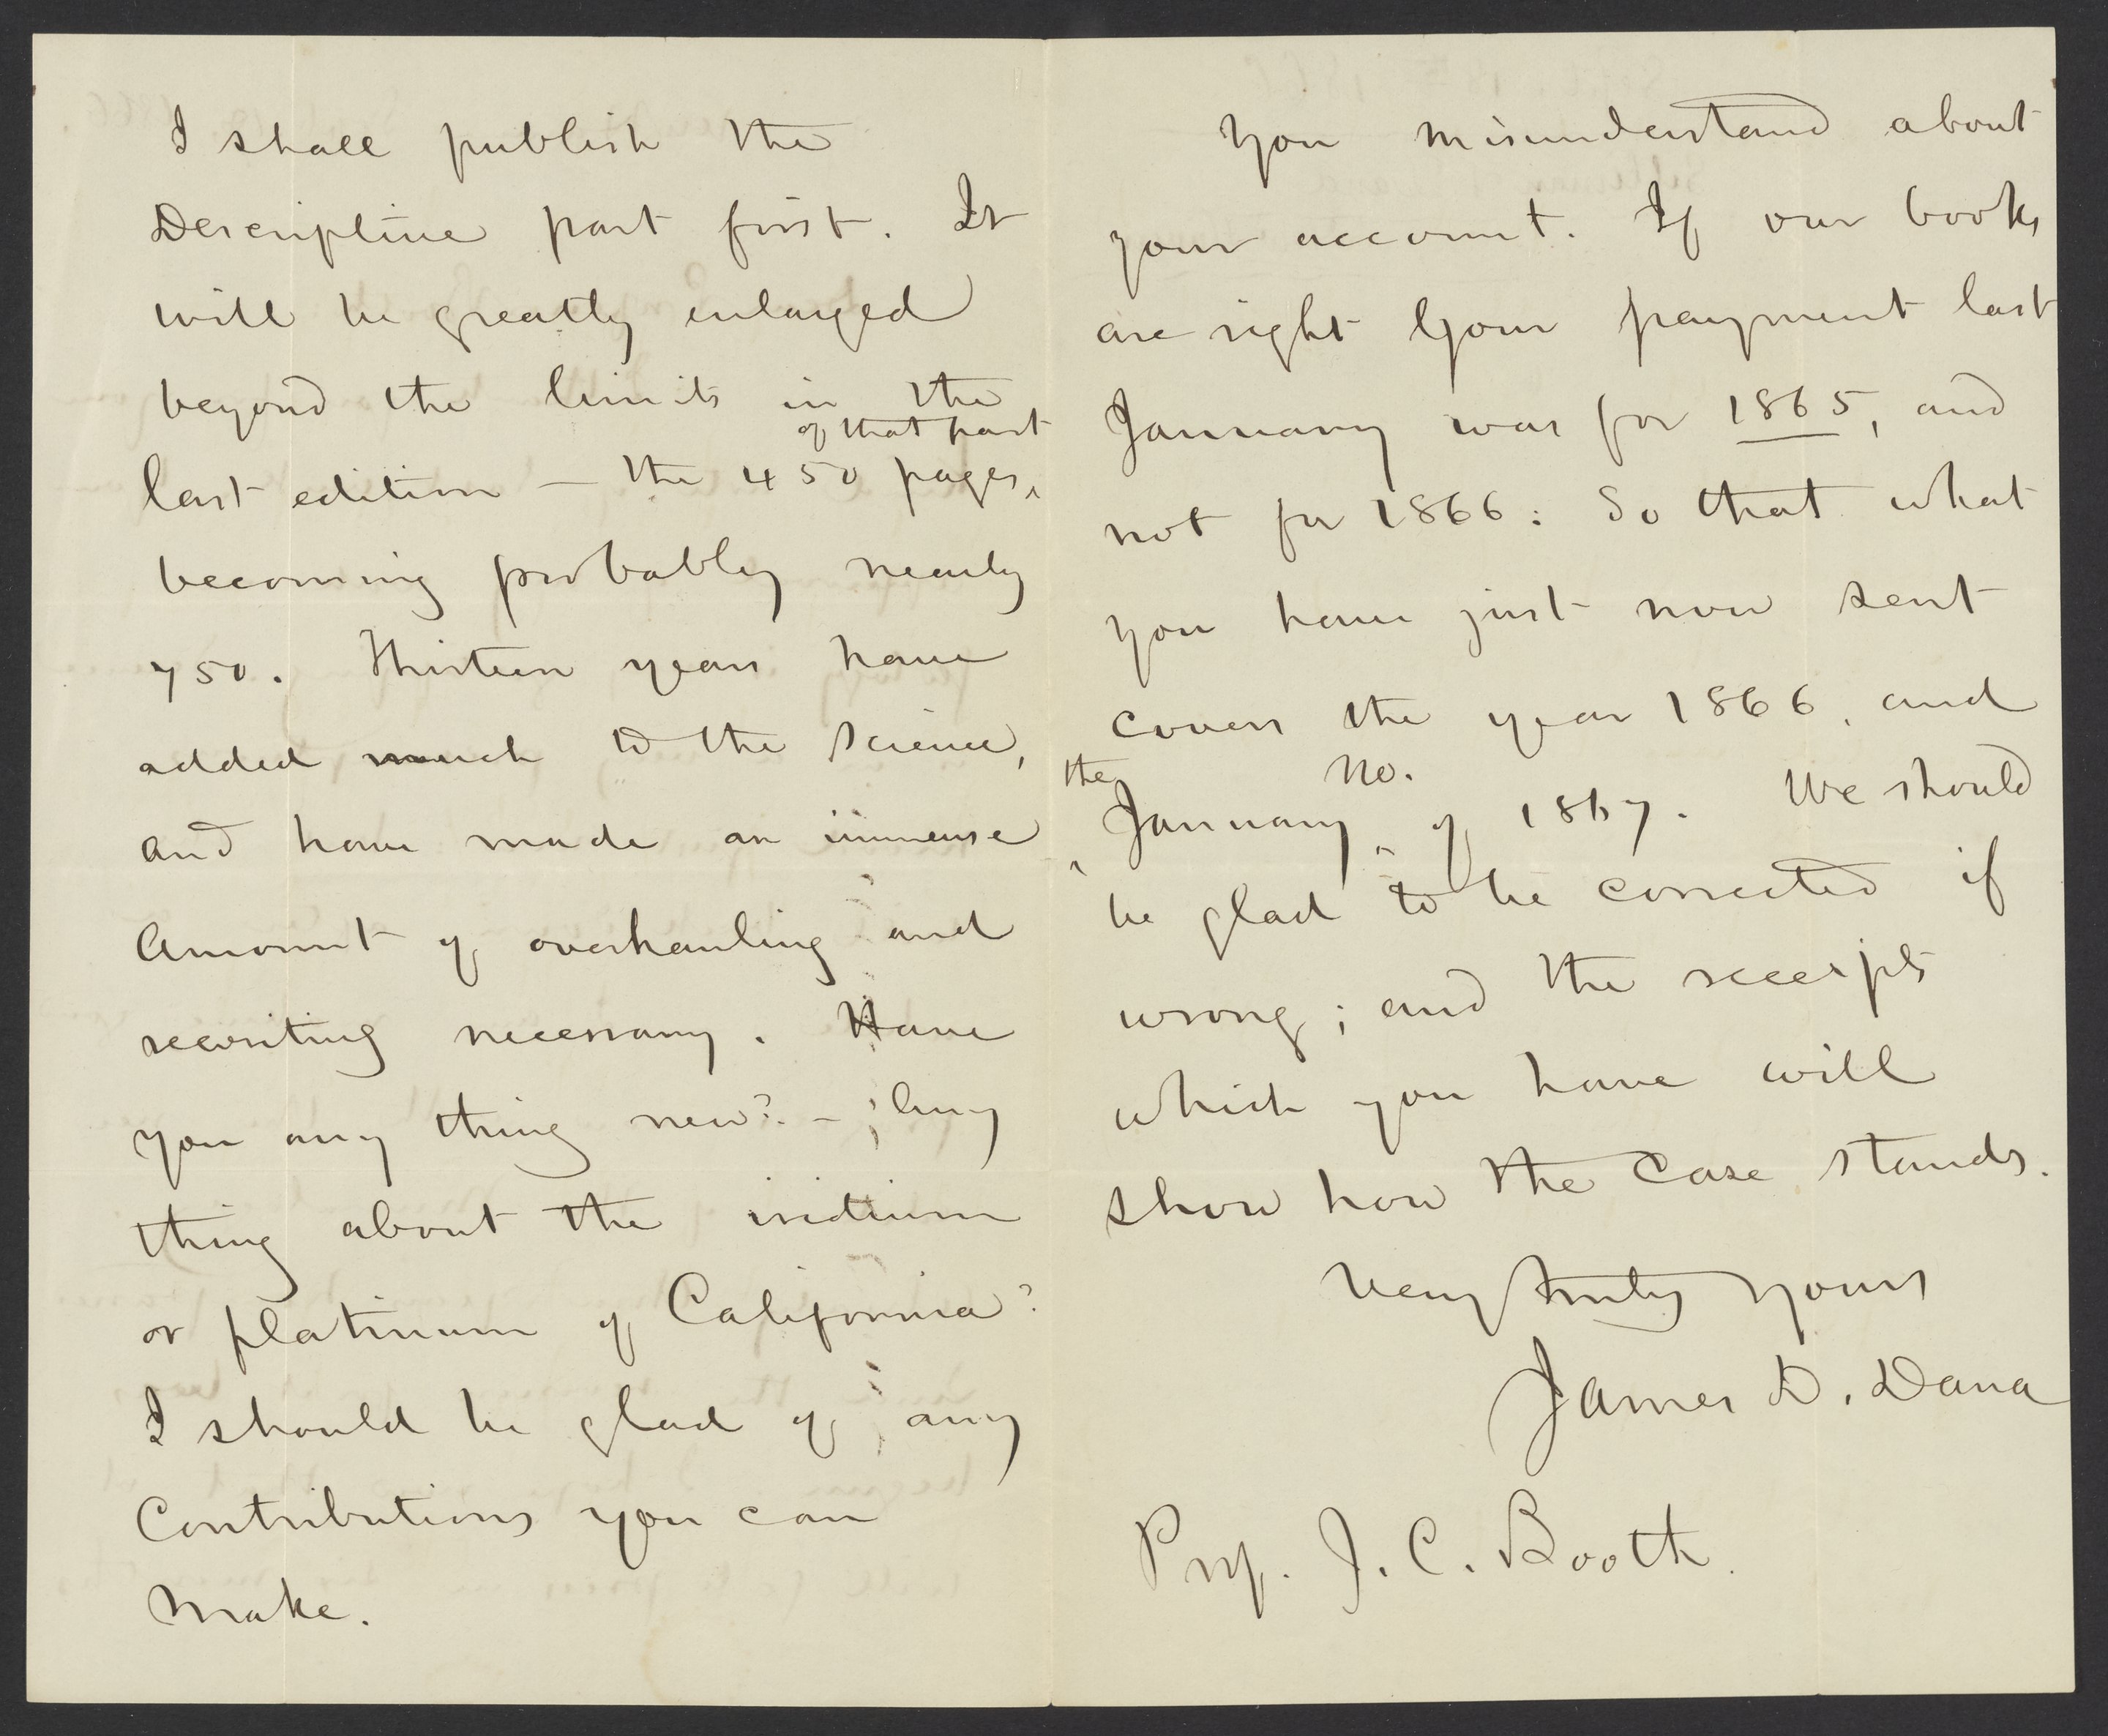 I shall publish the
Descriptive part first. It
will be greatly enlarged
beyond the limits in the
of that part
last edition — the 450 pages,
becoming probably nearly
750. Thirteen years have
added much to the science,
and have made an immense
amount of overhauling and
rewriting necessary. Have
you any thing new? - Any
thing about the iridium
or platinum of California?
I should be glad of any
contributions you can
make.
You misunderstand about
your account. If our books
are right your payment last
January was for 1865, and
not for 1866: So that what
you have just now sent
covers the year 1866, and
the No.
January of 1867. We should
be glad to be corrected if
wrong; and the receipts
which you have will
show how the case stands.
Very truly yours
James D. Dana
Prof. J. C. Booth.